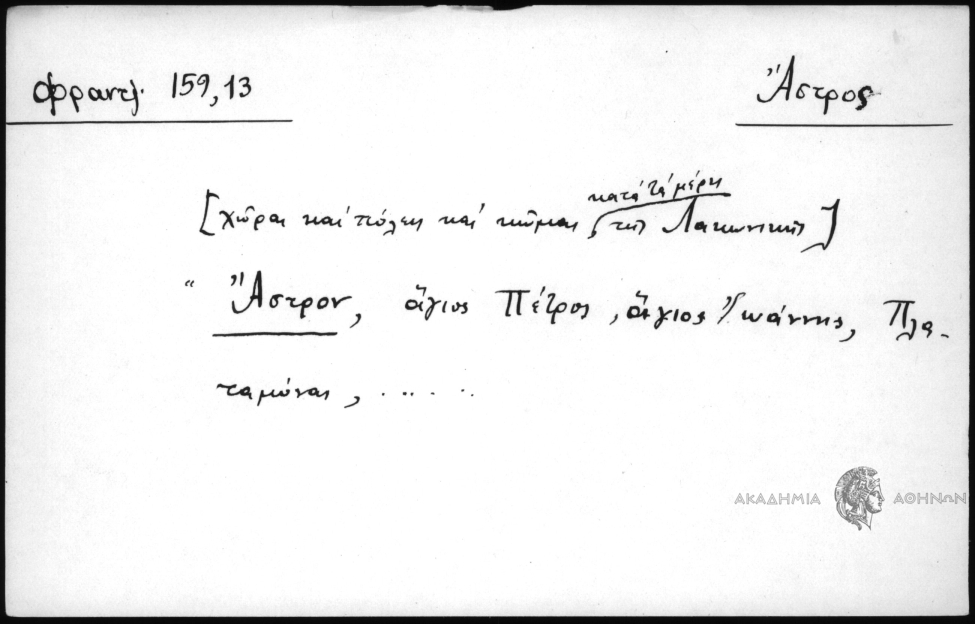 Φραντζ. 159,13
Ἄστρος
[χῶραι καὶ πόλεις καὶ κῶμαι κατὰ τὰ μέρη τῆς Λακωνικῆς]
“ Ἄστρον, ἅγιος Πέτρος, ἅγιος Ἰωάννης, Πλα-
ταμώνας, .....
ΑΚΑΔΗΜΙΑ ΑΘΗΝΩΝ